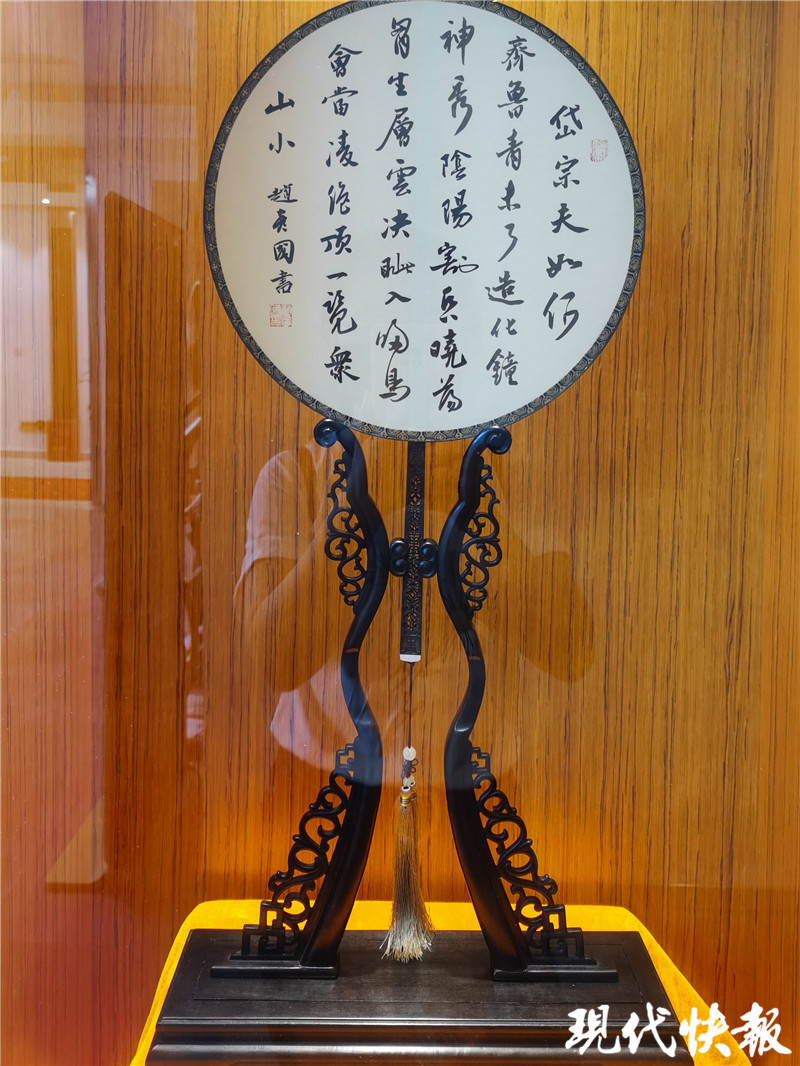 岱宗夫如何
齊魯青未了造化鐘
神秀陰陽割昏曉蕩
胷生層雲决眦入歸鳥
會當凌絶頂一覽衆
山小 趙彥國書
現代快報